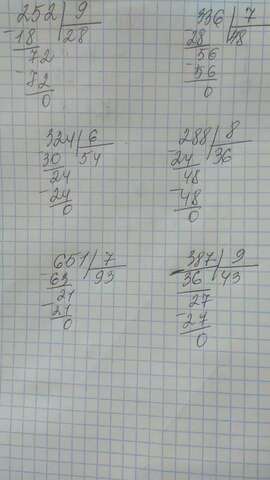 252 | 9
- 18 | 28
72
- 72
0
336 | 7
28 | 48
56
- 56
0
324 | 6
- 30 | 54
24
- 24
0
288 | 8
- 24 | 36
48
- 48
0
651 | 7
63 | 93
21
- 21
0
387 | 9
- 36 | 43
27
- 27
0